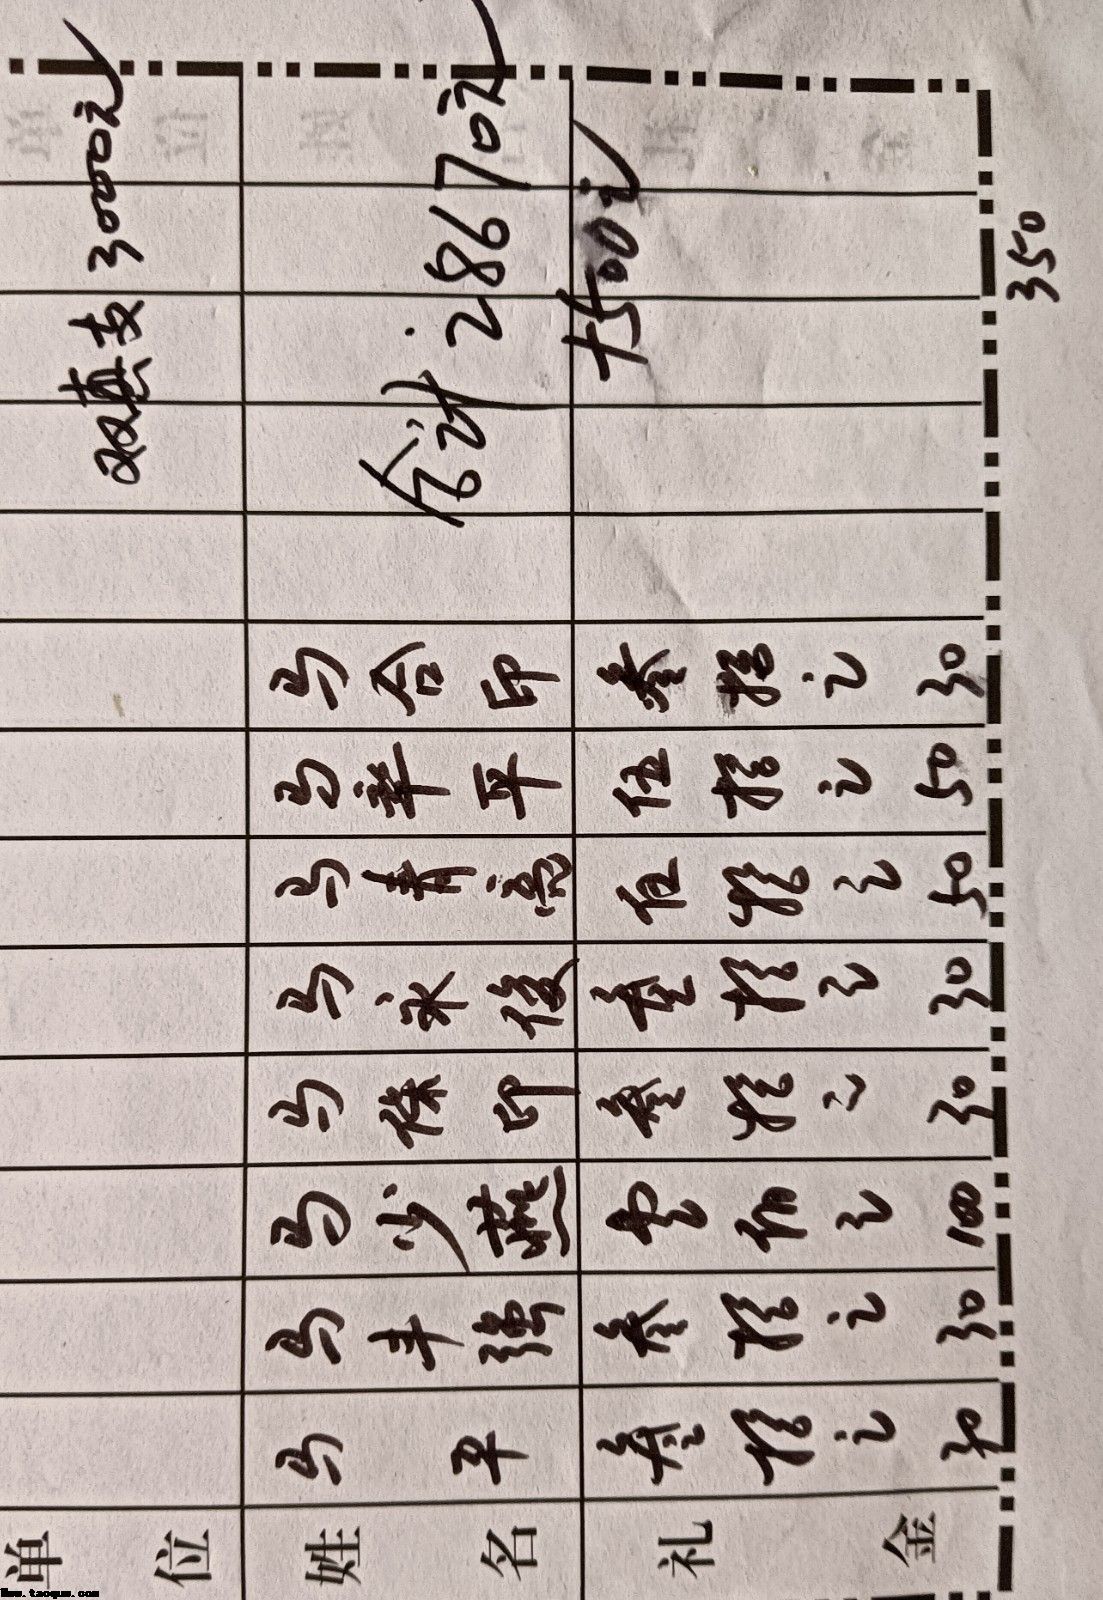 单位 姓名 礼金
马平 叁拾元 30
马丰强 叁拾元 30
马少燕 壹佰元 100
马保印 叁拾元 30
马永俊 叁拾元 30
马青亮 伍拾元 50
马苹平 伍拾元 50
马合印 叁拾元 30
350
双惠支3000元
合计28670元
+500元
Www.taoquw.com